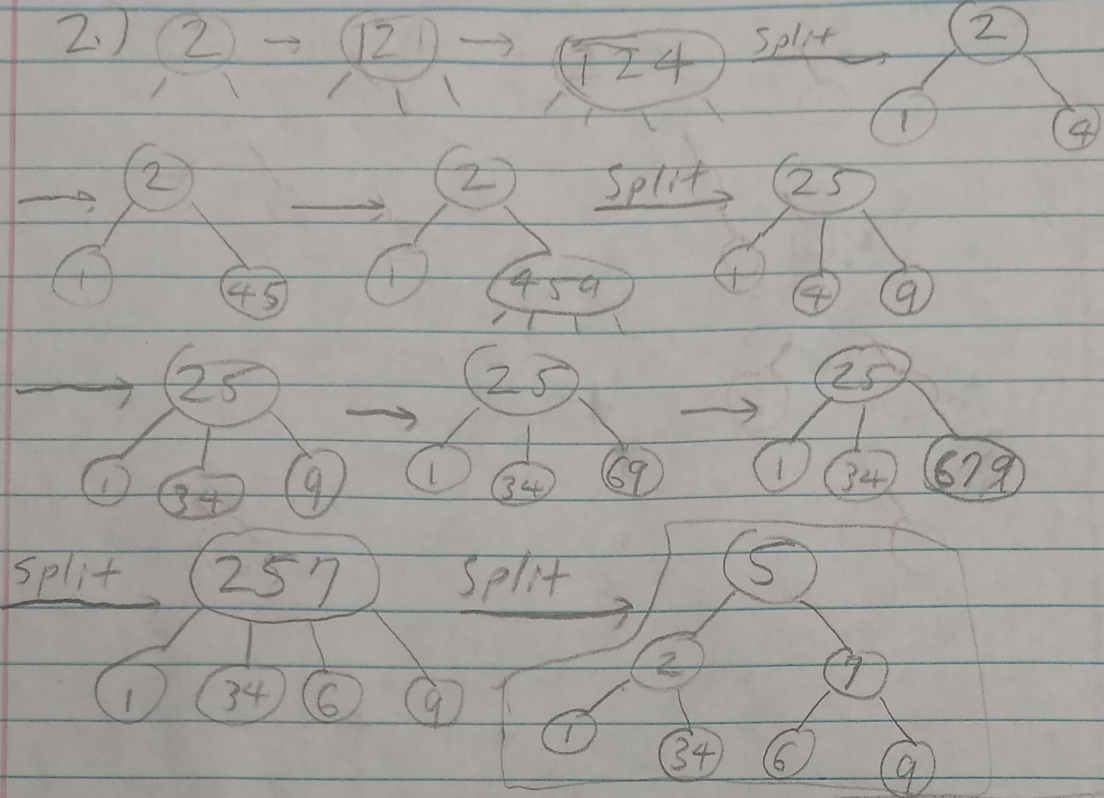 2.) 2 → 12 → 124 Split 2
1 4
→ 2 → 2 Split 25
1 45 1 459 1 4 9
→ 25 → 25 → 25
1 34 9 1 34 69 1 34 679
Split 257 Split 5
2 7
1 34 6 9
1 34 6 9